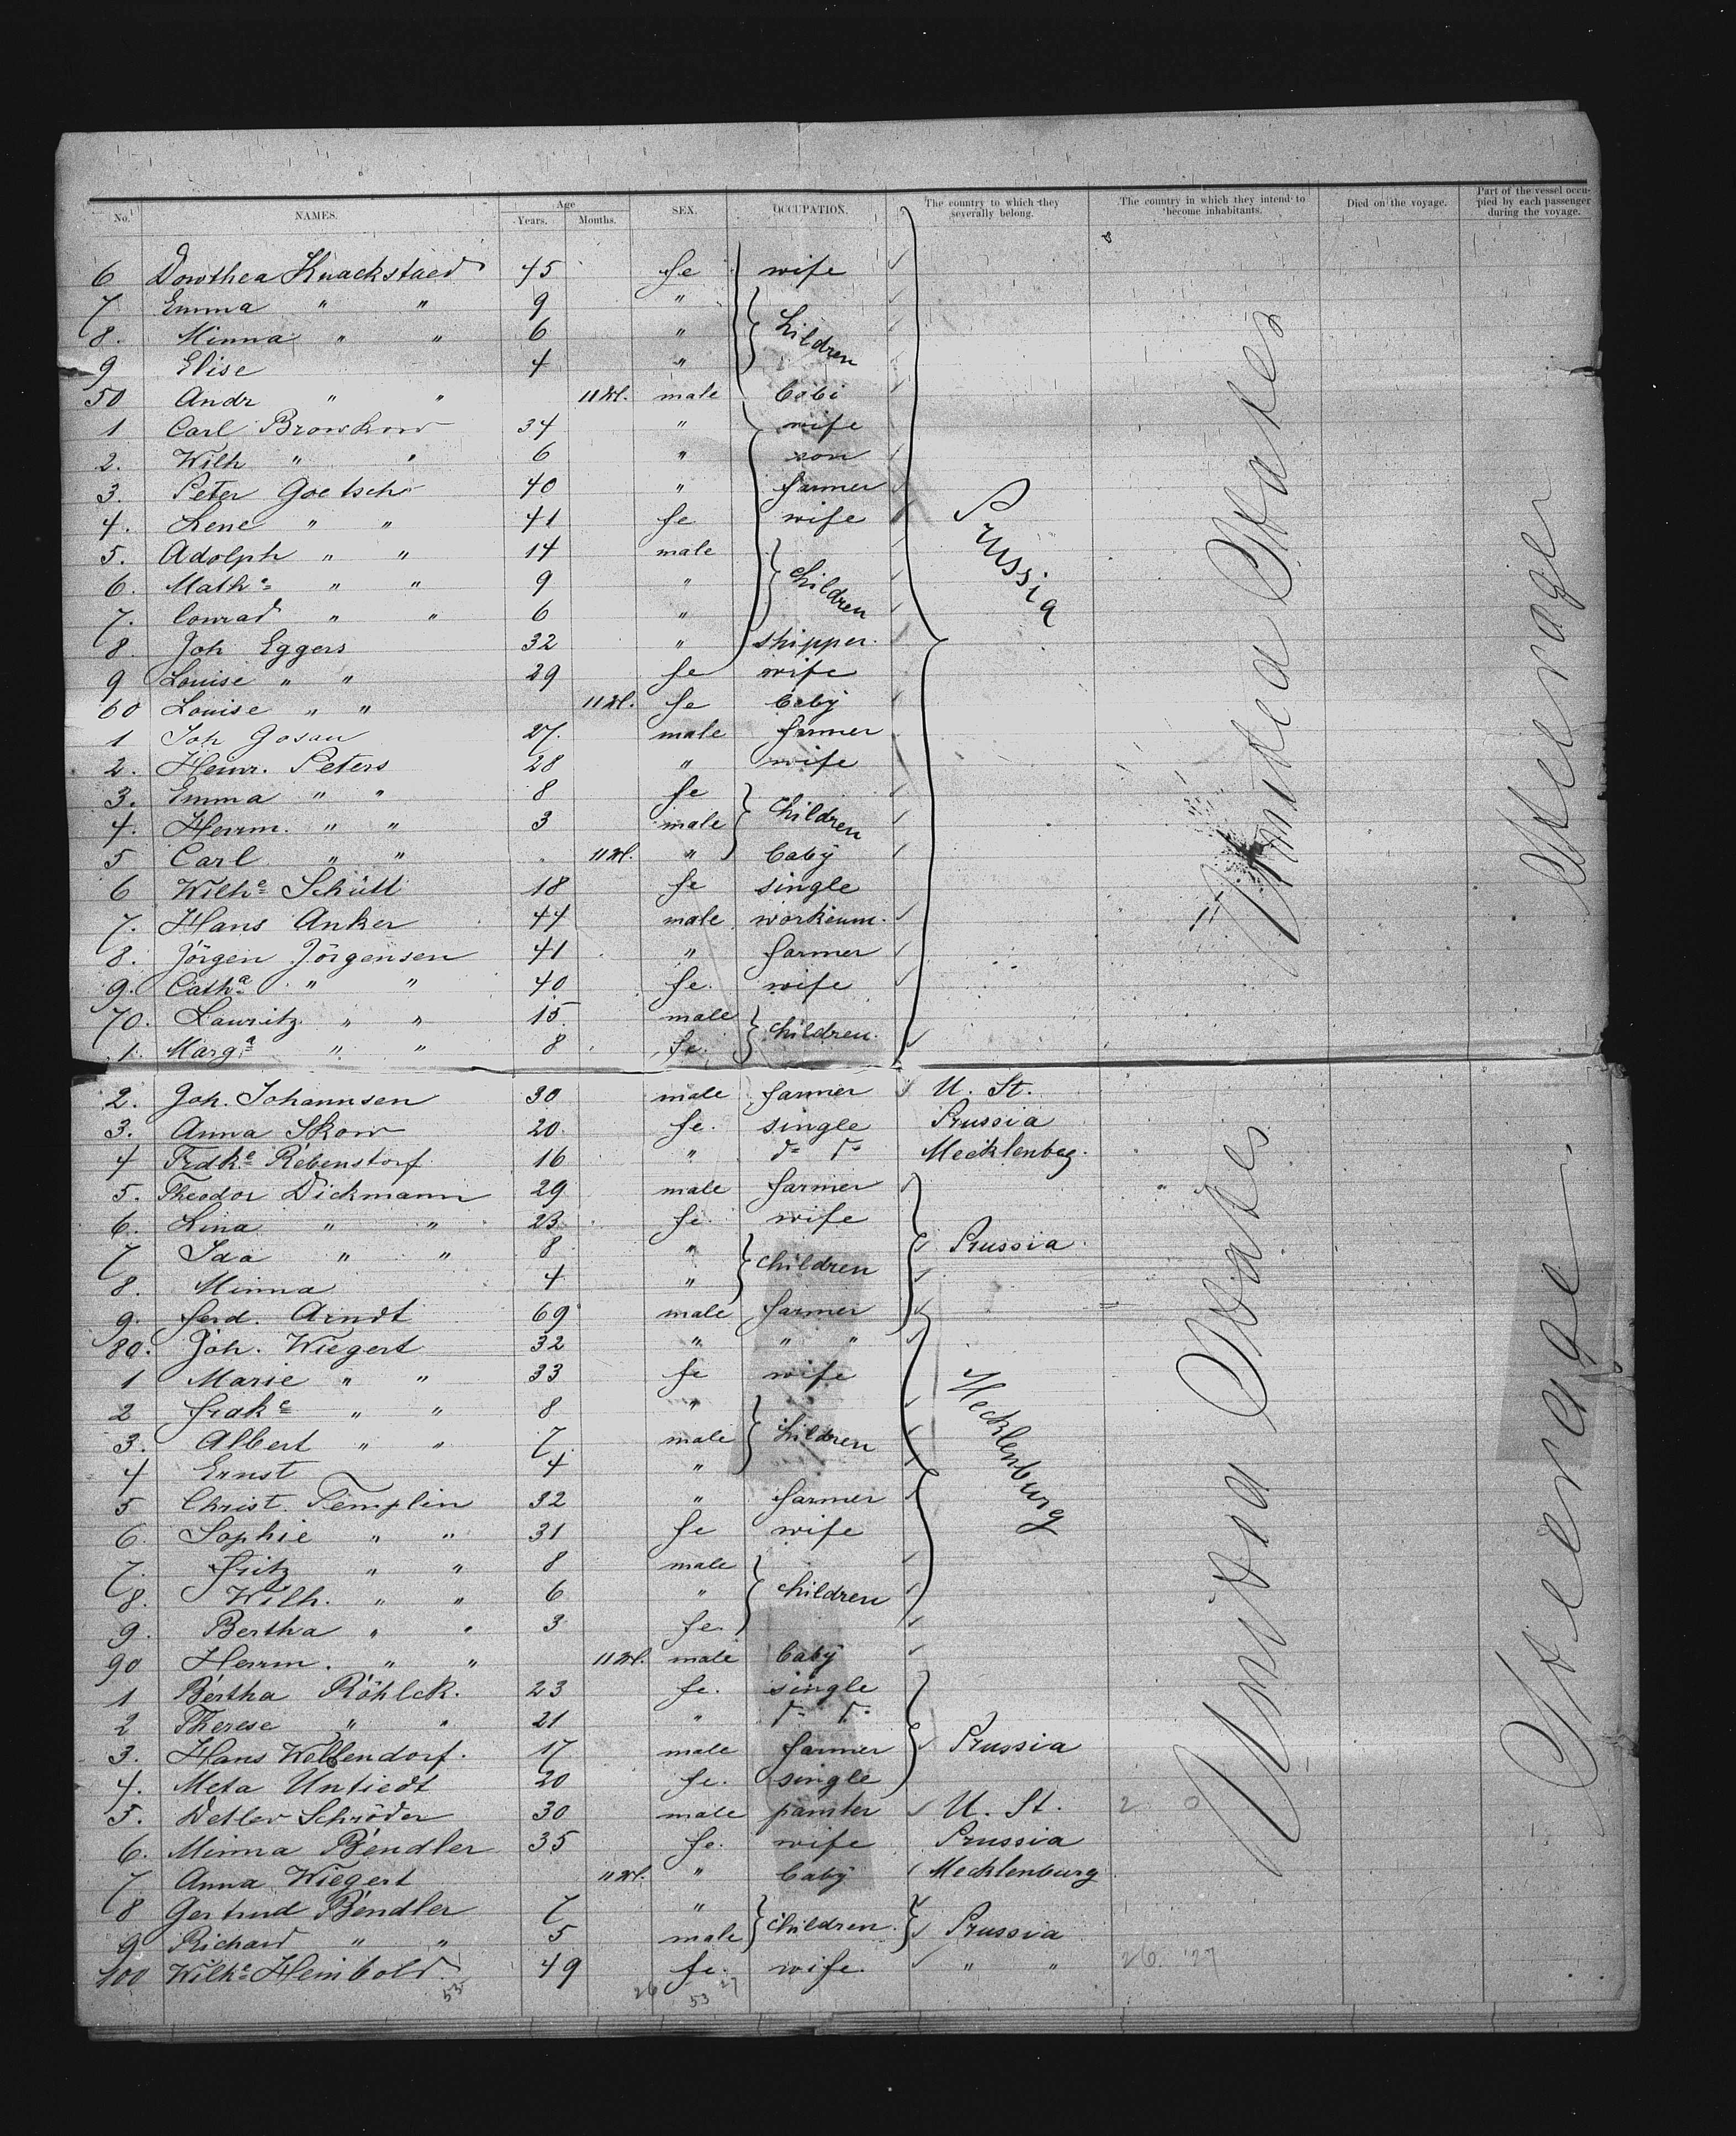 No. NAMES. Age Years. Months. SEX. OCCUPATION. The country to which they severally belong. The country in which they intend to become inhabitants. Died on the voyage. Part of the vessel occupied by each passenger during the voyage.
6 Dorothea Knackstaed 45 fe wife
7 Emma " " 9 "
8. Minna " " 6 " children
9 Elise 4 "
50 Andr " " 11 M. male babi
1 Carl Browkow 34 " wife
2. Wilh " " 6 " son
3. Peter Goetsch 40 " farmer
4. Lene " " 41 fe wife Prussia
5. Adolph " " 14 male
6. Mathe " " 9 " children
7. Conrad " " 6 "
8 Joh Eggers 32 " shipper.
9 Louise " " 29 fe wife
60 Louise " " 11 M. fe baby United States Steerage
1 Joh Gosau 27. male farmer
2. Heinr. Peters 28 " wife
3. Emma " " 8 fe
4. Herrm. " " 3 male children
5 Carl " " 11 M. " baby
6 Wilhe Schütt 18 fe single
7. Hans Anker 44 male workeum.
8. Jörgen Jörgensen 41 " farmer
9. Catha " " 40 fe. wife
70. Lauritz " " 15 male children.
1. Marga " " 8 fe.
2. Joh. Johannsen 30 male farmer U. St.
3. Anna Skow 20 fe. single Prussia
4 Frdke Rebenstorf 16 " do do Mecklenbeg.
5. Theodor Dickmann 29 male farmer
6. Lina " " 23 fe. wife
7 Ida " " 8 " children Prussia
8. Minna 4 "
9. Ferd. Arndt 69 male farmer
80. Joh. Wiegert 32 " " "
1 Marie " " 33 fe wife
2 Frdke " " 8 "
3. Albert " " 7. male children Mecklenburg
4 Ernst 4 "
5 Christ. Templin 32 " farmer
6. Sophie " " 31 fe wife United States Steerage
7. Fritz " " 8 male
8. Wilh. " " 6 " children
9. Bertha " " 3 fe.
90 Herrm. " " 11 M. male baby
1 Bertha Röhlck. 23 fe. single
2 Therese " " 21 " do do
3. Hans Wellendorf. 17 male farmer Prussia
4. Meta Untiedt 20 fe. single
5. Detlev Schröder 30 male painter U. St. 2 0
6. Minna Bendler 35 fe. wife Prussia
7 Anna Wiegert 11 M. " baby Mecklenburg
8 Gertrud Bendler 7 " children.
9 Richard " " 5 male Prussia
100 Wilhe Heinbold 49 fe. wife. " " 26. 27
53 26 53 27